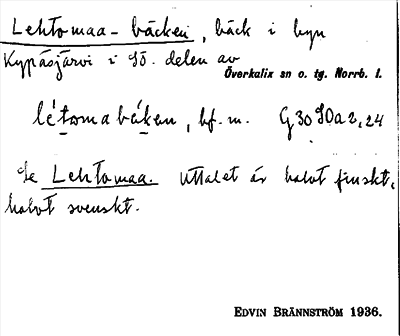 Lehtomaa-bäcken, bäck i byn
Kypäsjärvi i SÖ. delen av
Överkalix sn o. tg. Norrb. l.
létomabäken, bf. m. G 30 SO a 2, 24
Se Lehtomaa. Uttalet är halvt finskt,
halvt svenskt.
EDVIN BRÄNNSTRÖM 1936.